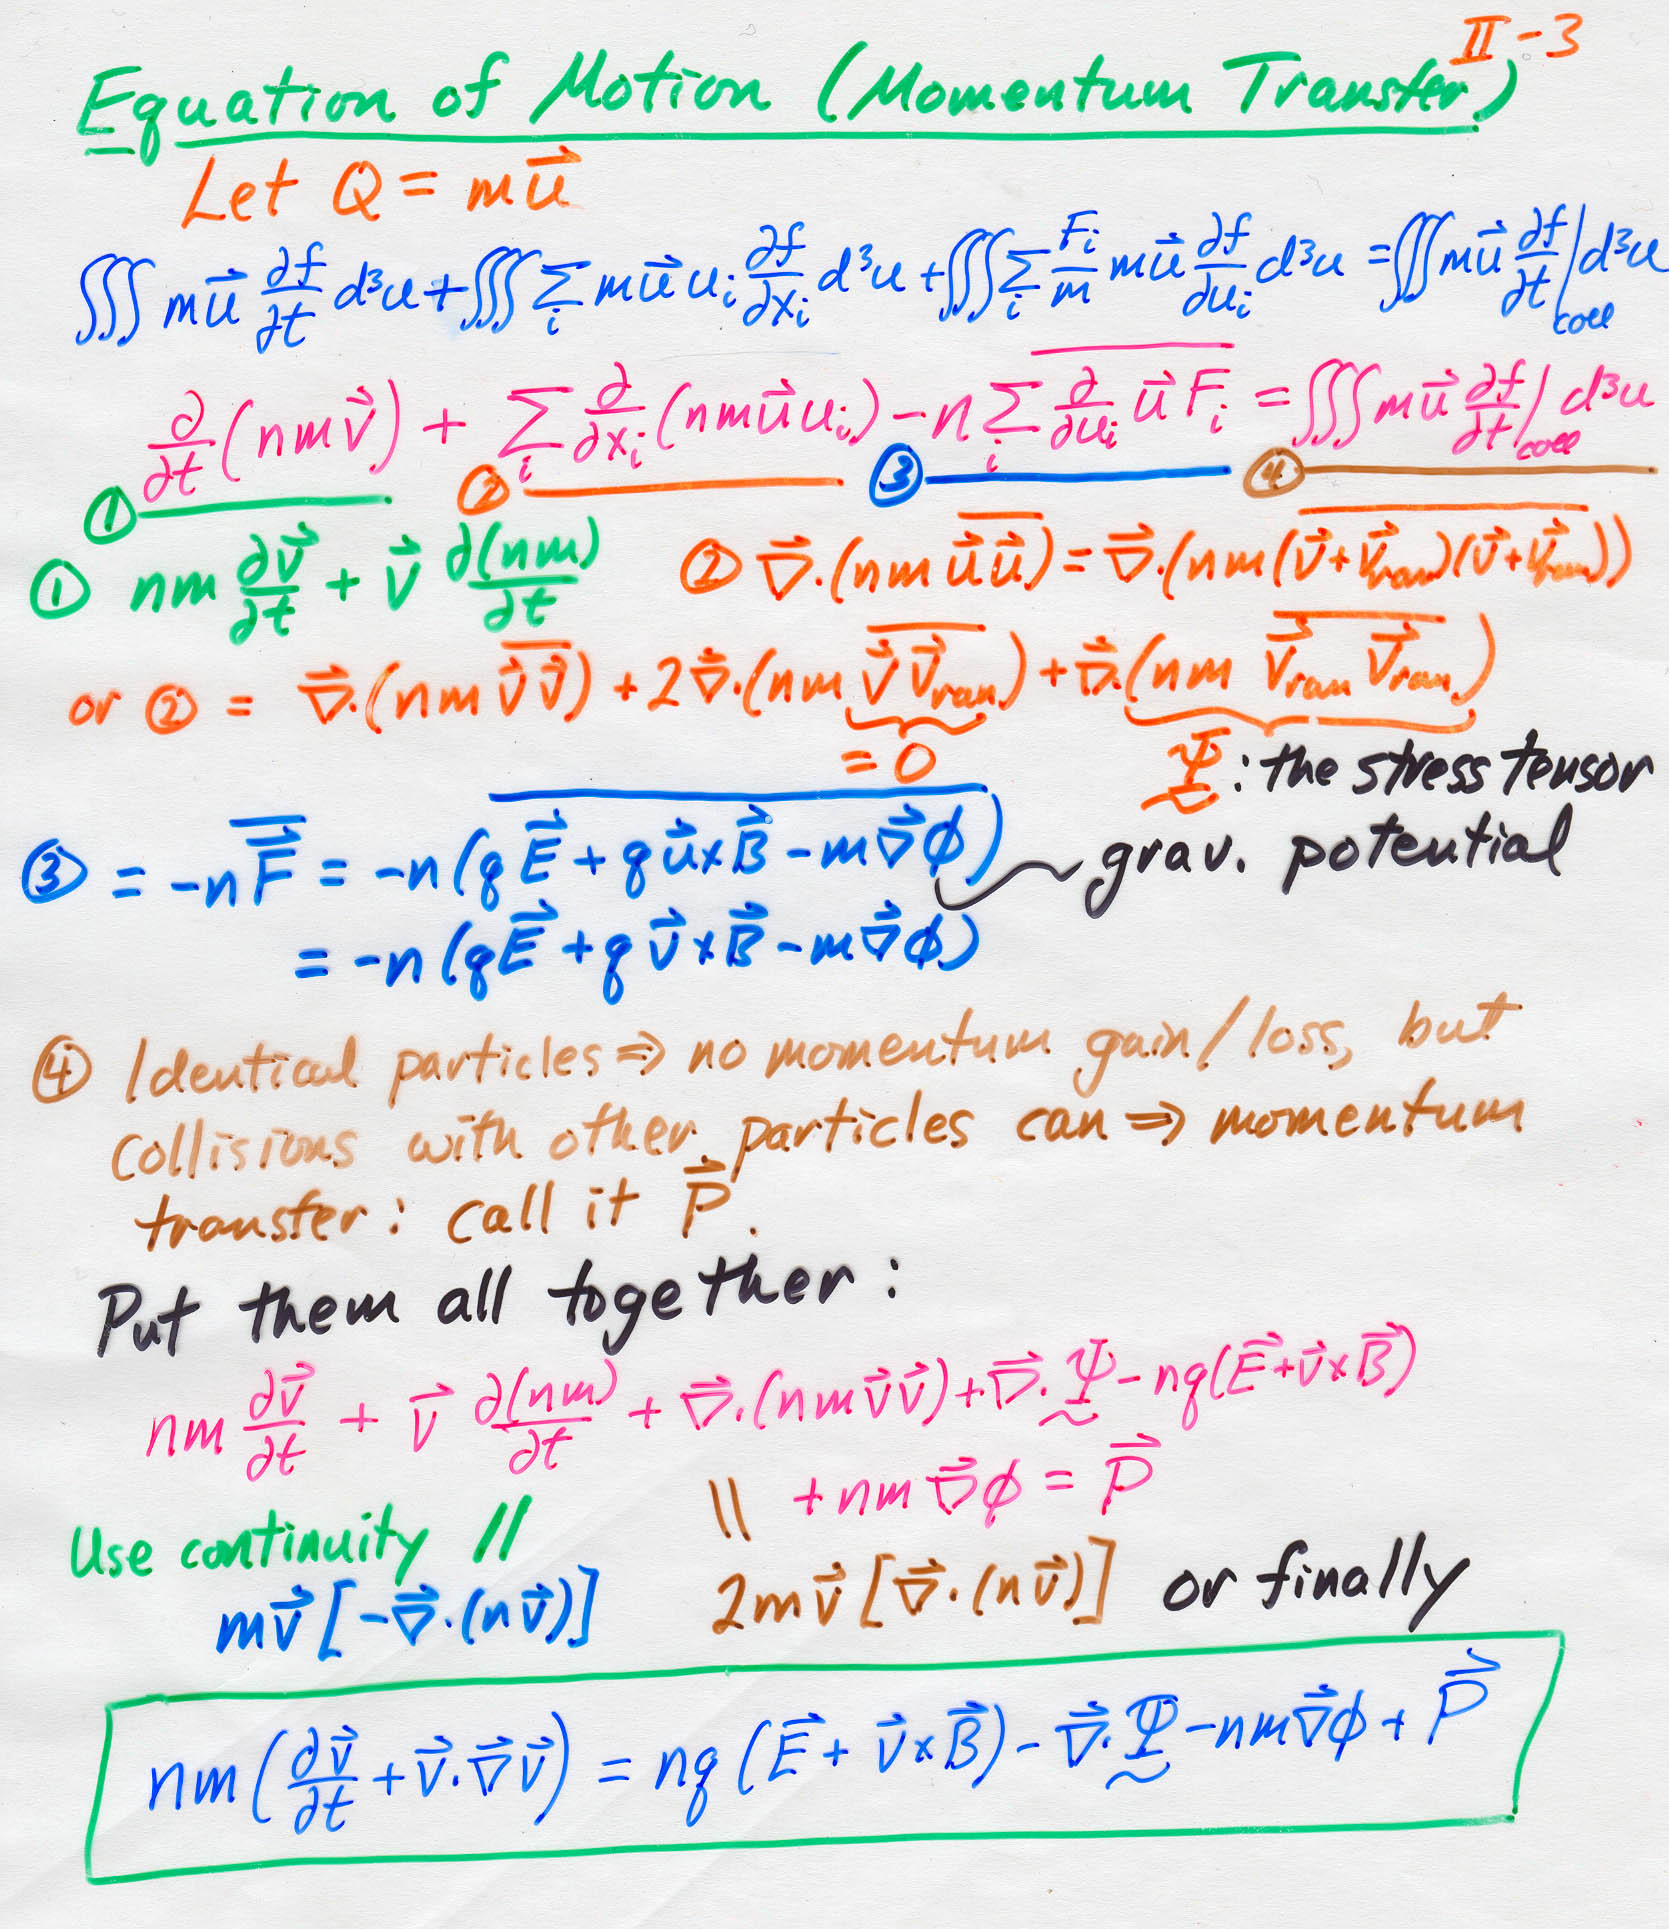 II-3
Equation of Motion (Momentum Transfer)
Let Q = m\vec{u}
∭ m\vec{u} ∂f/∂t d³u + ∭ Σ_i m\vec{u} u_i ∂f/∂x_i d³u + ∭ Σ_i F_i/m m\vec{u} ∂f/∂u_i d³u = ∭ m\vec{u} ∂f/∂t|_coll d³u
∂/∂t (nm\vec{v}) + Σ_i ∂/∂x_i (nm\vec{u}u_i) - n Σ_i \overline{∂/∂u_i \vec{u} F_i} = ∭ m\vec{u} ∂f/∂t|_coll d³u
① ② ③ ④
① nm ∂\vec{v}/∂t + \vec{v} ∂(nm)/∂t ② \vec{∇}·(nm \overline{\vec{u}\vec{u}}) = \vec{∇}·(nm \overline{(\vec{v}+\vec{v}_ran)(\vec{v}+\vec{v}_ran)})
or ② = \vec{∇}·(nm \overline{\vec{v}\vec{v}}) + 2\vec{∇}·(nm \overline{\vec{v}\vec{v}_ran}) + \vec{∇}·(nm \overline{\vec{v}_ran \vec{v}_ran})
= 0 Ψ: the stress tensor
③ = -n\overline{\vec{F}} = -n\overline{(q\vec{E} + q\vec{u}×\vec{B} - m\vec{∇}ϕ)} grav. potential
= -n(q\vec{E} + q\vec{v}×\vec{B} - m\vec{∇}ϕ)
④ Identical particles ⇒ no momentum gain/loss, but
collisions with other particles can ⇒ momentum
transfer: call it \vec{P}.
Put them all together:
nm ∂\vec{v}/∂t + \vec{v} ∂(nm)/∂t + \vec{∇}·(nm\vec{v}\vec{v}) + \vec{∇}·Ψ - nq(\vec{E}+\vec{v}×\vec{B})
+ nm\vec{∇}ϕ = \vec{P}
Use continuity // ||
m\vec{v}[-\vec{∇}·(n\vec{v})] 2m\vec{v}[\vec{∇}·(n\vec{v})] or finally
nm(∂\vec{v}/∂t + \vec{v}·\vec{∇}\vec{v}) = nq(\vec{E} + \vec{v}×\vec{B}) - \vec{∇}·Ψ - nm\vec{∇}ϕ + \vec{P}